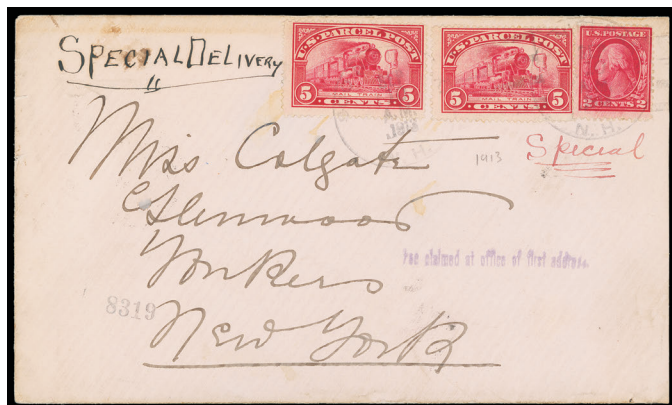 SPECIAL DELIVERY
"
U.S. PARCEL POST
5 MAIL TRAIN 5
CENTS
U.S. PARCEL POST
5 MAIL TRAIN 5
CENTS
U.S. POSTAGE
2 CENTS 2
N.H.
1913
Special
Miss Colgate
Glenwood
Yonkers
New York
Fee claimed at office of first address.
8319